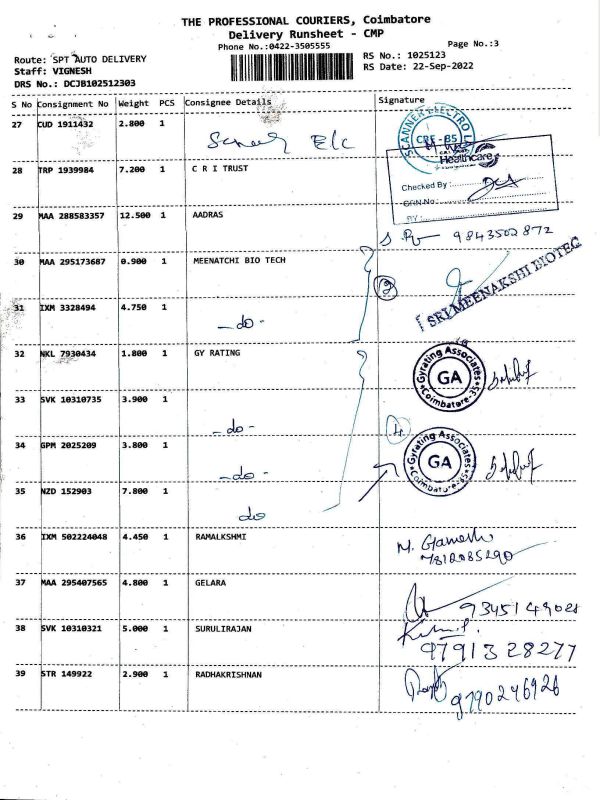 THE PROFESSIONAL COURIERS, Coimbatore
Delivery Runsheet - CMP
Phone No.:0422-3505555
Page No.:3
Route: SPT AUTO DELIVERY
RS No.: 1025123
Staff: VIGNESH
RS Date: 22-Sep-2022
DRS No.: DCJB102512303
S No Consignment No Weight PCS Consignee Details Signature
27 CUD 1911432 2.800 1
Elc
SCANNER ELECTRO
CBE - 85
28 TRP 1939984 7.200 1 C R I TRUST
Healthcare
Checked By :
GRN No :
BY :
29 MAA 288583357 12.500 1 AADRAS
9843502872
30 MAA 295173687 0.900 1 MEENATCHI BIO TECH
2
SRI MEENAKSHI BIOTEC
31 IXM 3328494 4.750 1
- do -
32 NKL 7930434 1.800 1 GY RATING
Gyrating Associates
GA
Coimbatore-35
33 SVK 10310735 3.900 1
- do -
4
34 GPM 2025209 3.800 1
Gyrating Associates
GA
Coimbatore-35
- do -
35 NZD 152903 7.800 1
do
36 IXM 502224048 4.450 1 RAMALKSHMI
M. Ganesh
7812085290
37 MAA 295407565 4.800 1 GELARA
9345149028
38 SVK 10310321 5.000 1 SURULIRAJAN
9791328277
39 STR 149922 2.900 1 RADHAKRISHNAN
9790246926